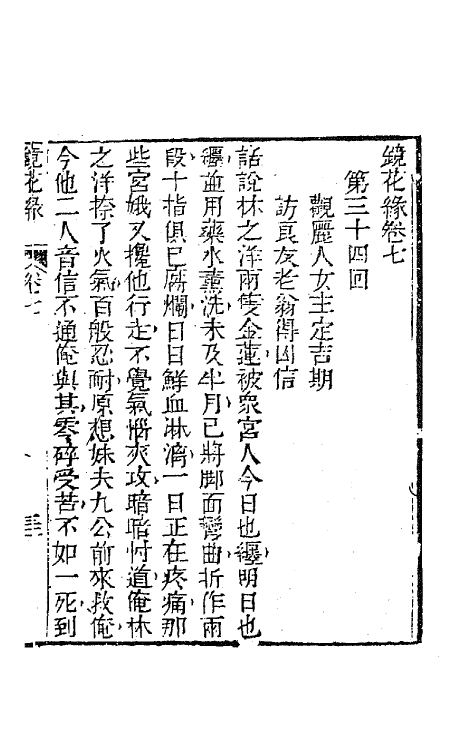 鏡花緣卷七
第三十四回
觀麗人女主定吉期
訪良友老翁得凶信
話說林之洋兩隻金蓮被眾宮人今日也纏明日也
纏並用藥水薰洗未及半月已將脚面彎曲折作兩
段十指俱已腐爛日日鮮血淋漓一日正在疼痛那
些宮娥又攙他行走不覺氣惱夾攻暗暗忖道俺林
之洋捺了火氣百般忍耐原想妹夫九公前來救俺
今他二人音信不通俺與其零碎受苦不如一死到
鏡花緣
卷七